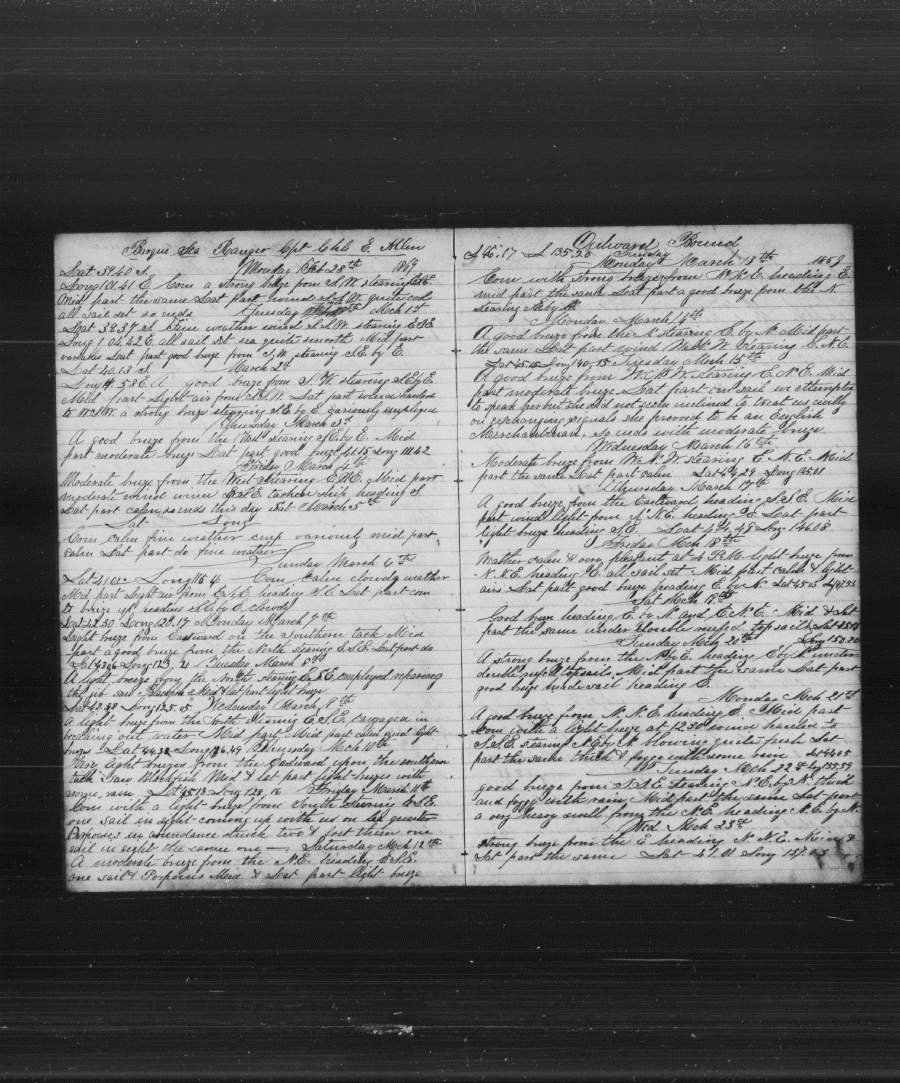 Barque Sea Ranger Cpt Chls E. Allen
Lat 39.40 S. Monday Feb 28th 1869
Long 101.41 E. Com a strong breze from S.W. stearing
Mid part the same Last part wind quite cod
all sail set so ends Tuesday Mch 1st
Lat 38.37 S fine weather wind S.S.W. stearing
Long 104.42 E. all sail set sea quite smooth Mid part
Last part good breze from S.W. stearing S.E. by E.
Lat 40.13 S. March 2d
Long A good breze from S.W. stearing S.E. by E.
Mid part light air from S.S.W. Last part wind hauled
to W.S.W. a strong breze stearing S.E. by E. variously employed
Thursday March 3d
A good breze from the West stearing S.E. by E. Mid
part moderate breze Last part good breze Lat 41.15 Long 111.42
Friday March 4th
Moderate breze from the West stearing Mid part
moderate wind tacked ship heading S
Last part calm so ends this day Sat March 5th
Lat Long
Com calm fine weather emp variously mid part
calm Last part do fine weather
Sunday March 6th
Lat 41.01 Long 115 4 Com calm cloudy weather
Mid part light air from heading Last part com
to breze up heading S.E. by E. cloudy
Lat 42.30 Long 120.17 Monday March 7th
Light breze from Eastward on the Southern tack Mid
part a good breze from the North stearing E.S.E. Last part do
Long 123. 21 Tuesday March 8th
A light breze from the North stearing employed reparing
the jib saw Blackfish Mid & last part light breze
Lat 42.38 Long 125.05 Wednesday March 9th
A light breze from the North stearing E.S.E. engaged in
breaking out water Mid part Mid part calm and light
breze Lat 44.38 Long 126.45 Thursday Mch 10th
Very light brezes from the Eastward upon the southern
tack Saw Blackfish Mid & Last part light brezes with
some rain Lat 45 13 Long 128. 16 Friday March 11th
Com with a light breze from South stearing E.S.E.
one sail in sight coming up with us on lee quarter
Porpoises in abundance struck two & lost them one
sail in sight the same one Saturday Mch 12th
A moderate breze from the N.E. heading E.S.E.
one sail & Porpoises Mid & Last part light breze
Outward Bound
L 46.17 L 135.20 Sunday March 13th 1869
Com with strong breze from N.N.E. heading E.
mid part the same Last part a good breze from the N
stearing
Monday March 14th
A good breze from the N stearing E. by N. Mid part
the same Last part wind N.N.W. stearing E.N.E.
Lat 45.15 Long 140.15 Tuesday Mch 15th
A good breze from W. by N stearing E.N.E. Mid
part moderate breze Last part one sail in attempting
to speak her but she did not seem inclined to treat us civilly
on exchanging signals she proved to be an English
Merchantman. So ends with moderate breze
Wednesday March 16th
Moderate breze from W.N.W. stearing E.N.E. Mid
part the same Last part calm Lat 44.29 Long 145.01
Thursday March 17th
A good breze from the Eastward heading S.S.E. Mid
part wind light from N.N.E. heading E. Last part
light breze heading S.E. Lat 44.49 Long 146.08
Friday Mch 18th
Weather calm & very pleasant at 4 P.M. light breze from
N.N.E. heading E. all sail set Mid part calm & light
airs Last part good breze heading E. by N. Lat 45.03
Sat Mch 19th
Good breze heading E. by N. and E.N.E. Mid & Last
part the same under double reefed top sails
Sunday Mch 20th Long 152.20
A strong breze from the N. by E. heading E. by N under
double reefed topsails, Mid part the same Last part
good breze under sail heading E.
Monday Mch 21st
A good breze from N.N.E. heading E. Mid part
Com with a light breze at 12.30 wind hauled to
S.S.E. stearing N.E. by N. blowing quite fresh Last
part the same thick & foggy with some rain Lat 44.05
Tuesday Mch 22d Long 155.59
good breze from S.S.E. stearing N.E. by N. thick
and foggy with rain, Mid part the same Last part
a very heavy swell from the N.E. heading N.E. by N.
Wed Mch 23d
Strong breze from the E heading N.N.E. Mid &
Last part the same Lat 41.01 Long 157.05